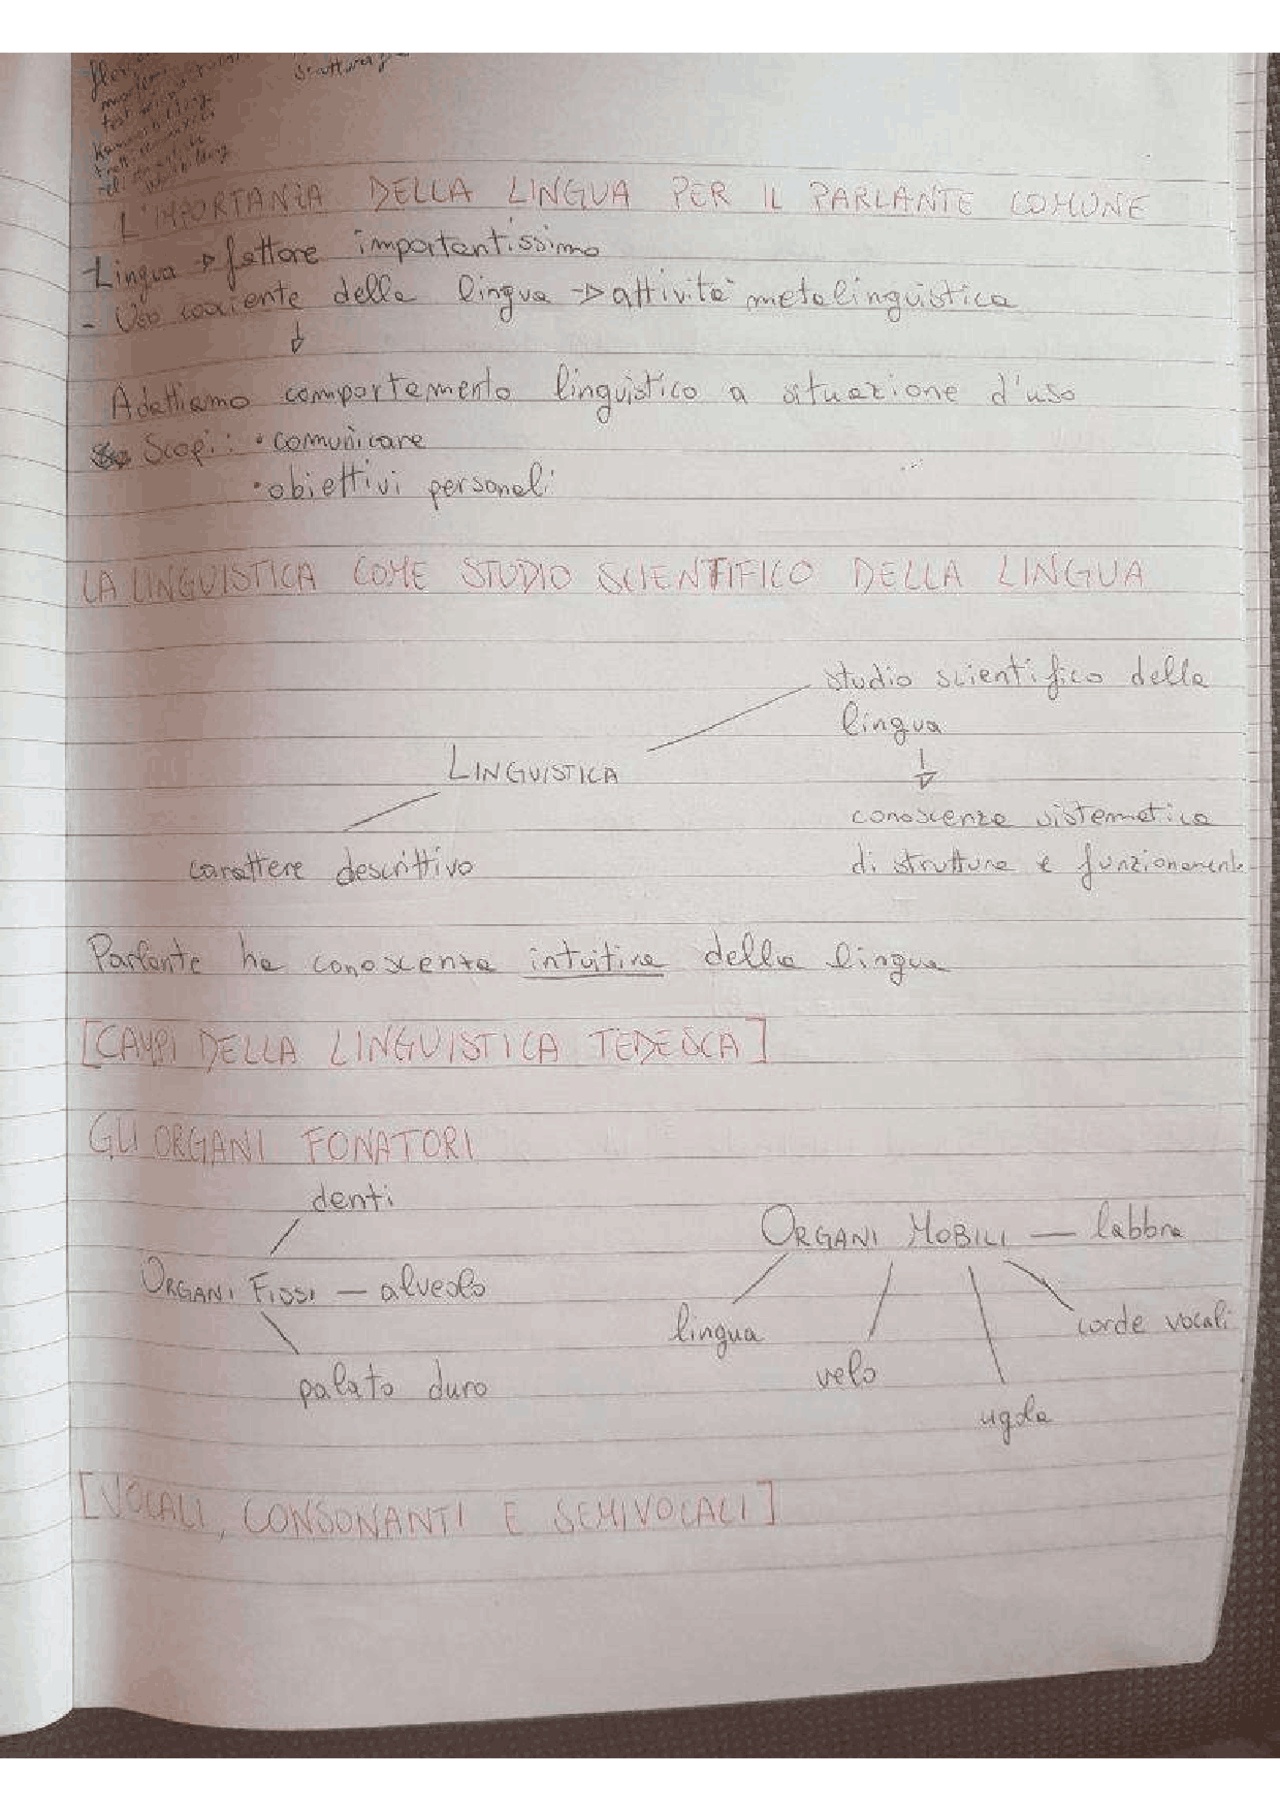 L'IMPORTANZA DELLA LINGUA PER IL PARLANTE COMUNE
- Lingua → fattore importantissimo
- Uso cosciente della lingua → attività metalinguistica
↓
Adattiamo comportamento linguistico a situazione d'uso
Scopi: • comunicare
• obiettivi personali
LA LINGUISTICA COME STUDIO SCIENTIFICO DELLA LINGUA
studio scientifico della
lingua
LINGUISTICA
↓
conoscenza sistematica
carattere descrittivo
di struttura e funzionamento
Parlante ha conoscenza intuitiva della lingua
[CAMPI DELLA LINGUISTICA TEDESCA]
GLI ORGANI FONATORI
denti
ORGANI MOBILI — labbra
ORGANI FISSI — alveolo
lingua
corde vocali
velo
palato duro
ugola
[VOCALI, CONSONANTI E SEMIVOCALI]